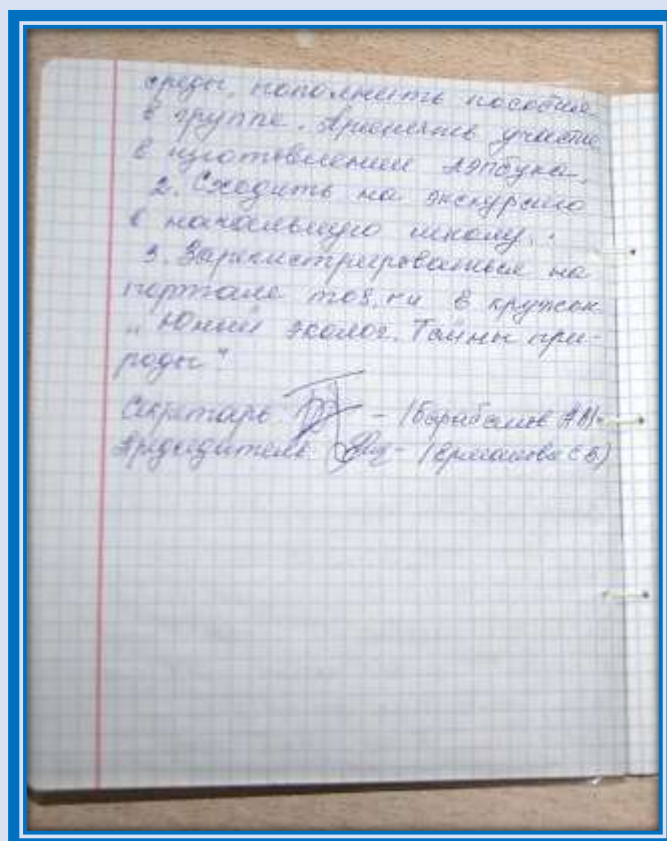 среды, пополнить пособия
в группе. Принять участие
в изготовлении лэпбука.
2. Сходить на экскурсию
в начальную школу.
3. Зарегистрироваться на
портале то8.ru в кружок
"Юный эколог. Тайны при-
роды"
Секретарь - (Барабанов АВ)
Председатель - (Ермакова СВ)